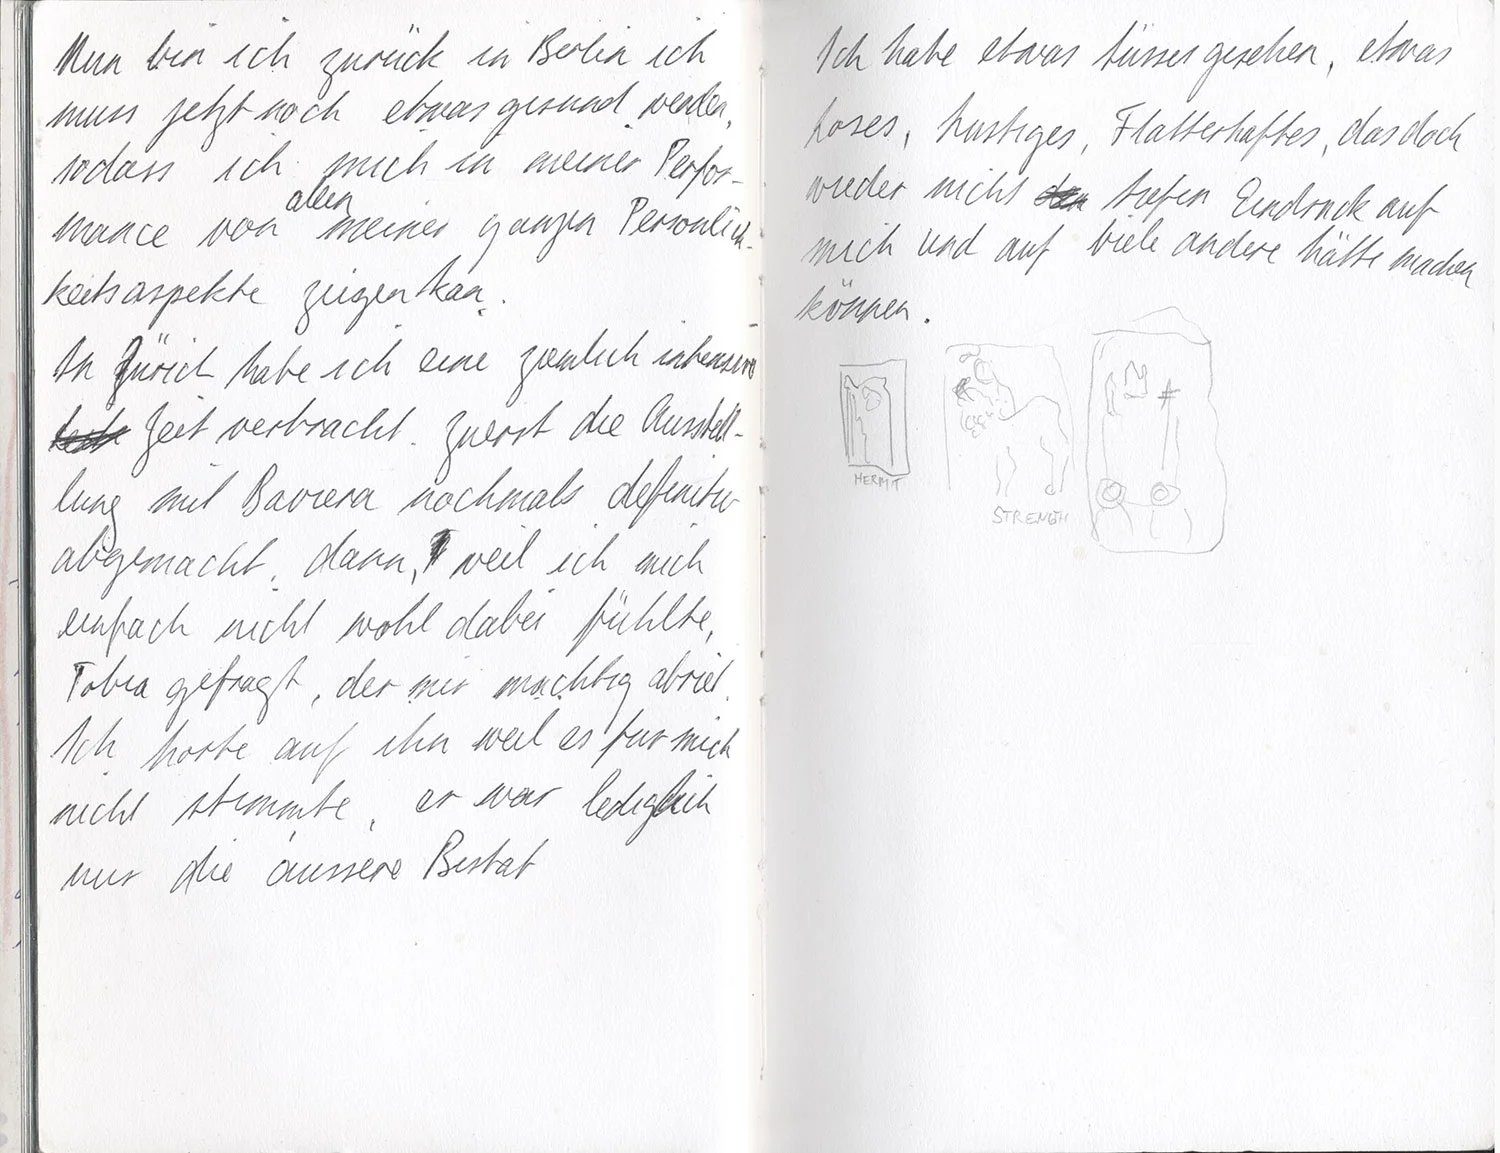 Nun bin ich zurück in Berlin ich
muss jetzt noch etwas gesund werden,
sodass ich mich in meiner Perfor-
allen
mance von meiner ganzen Persönlich-
keitsaspekte zeigen kan.
In Zürich habe ich eine ziemlich intensive
Zeit verbracht. Zuerst die Ausstell-
lung mit Baviera nochmals definitiv
abgemacht, dann, weil ich mich
einfach nicht wohl dabei fühlte,
Tobia gefragt, der mir mächtig abriet.
Ich hörte auf ihn weil es für mich
nicht stimmte, er war lediglich
nur die äussere
Ich habe etwas süsses gesehen, etwas
loses, lustiges, Flatterhaftes, das doch
wieder nicht tiefen Eindruck auf
mich und auf viele andere hätte machen
können.
HERMIT
STRENGTH